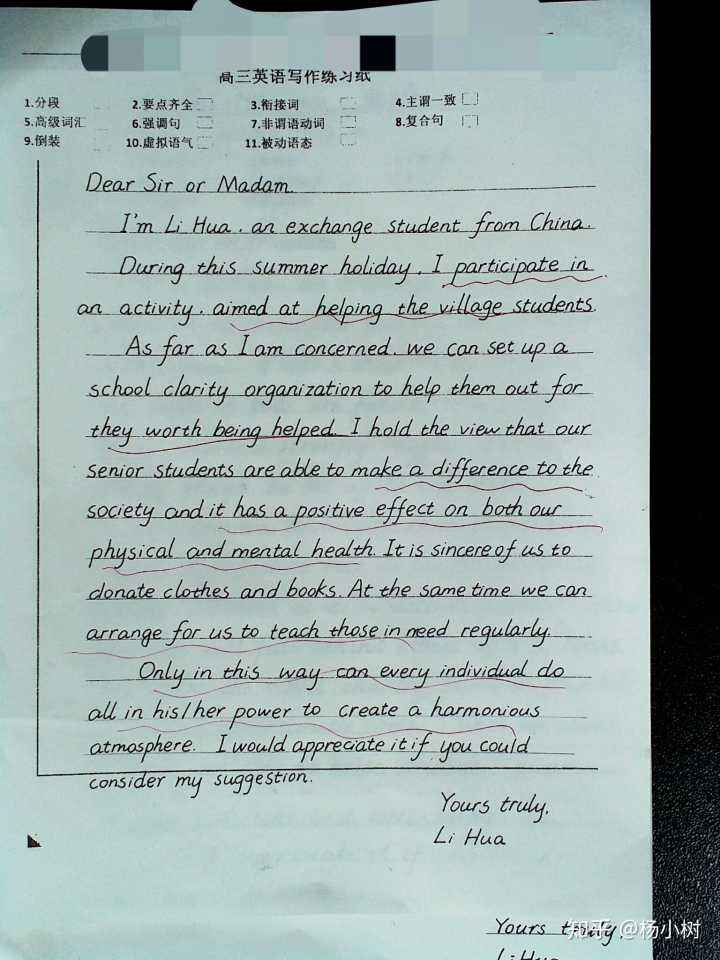 高三英语写作练习纸
1.分段 2.要点齐全 3.衔接词 4.主谓一致
5.高级词汇 6.强调句 7.非谓语动词 8.复合句
9.倒装 10.虚拟语气 11.被动语态
Dear Sir or Madam
I'm Li Hua, an exchange student from China.
During this summer holiday, I participate in
an activity, aimed at helping the village students.
As far as I am concerned, we can set up a
school clarity organization to help them out for
they worth being helped. I hold the view that our
senior students are able to make a difference to the
society and it has a positive effect on both our
physical and mental health. It is sincere of us to
donate clothes and books. At the same time we can
arrange for us to teach those in need regularly.
Only in this way can every individual do
all in his/her power to create a harmonious
atmosphere. I would appreciate it if you could
consider my suggestion.
Yours truly,
Li Hua
Yours truly,
Li Hua
知乎 @杨小树